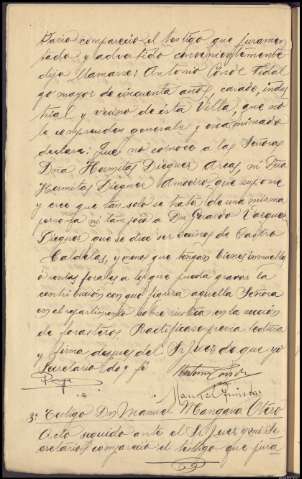 compareció el testigo que juramen-
tado y advertido convenientemente
dijo llamarse: Antonio Conde Fidal-
go mayor de cincuenta años, casado, indus-
trial y vecino de ésta Villa; que no
le comprenden generales y examinado
declara: Que no conoce a las Señoras
Dña Hermitas Dieguez Areas, ni Dña
Hermitas Dieguez Amoeiro, que supone
y cree que tan solo se trata de una misma
persona ni tampoco a Dn Gerardo Vazquez
Dieguez que se dice ser vecinos de Castro
Caldelas, y menos que tengan bienes inmuebles
ó rentas forales a los que pueda gravar la
contribución con que figura aquella Señora
en el repartimiento sobre rústica en la sección
de forasteros. Ratifícase previa lectura
y firma despues del Sr Juez de que yo
Secretario doy fe.
Antonio Conde
Manuel
3º Testigo Dn Manuel Otero
Acto seguido ante el Sr Juez y mi Se-
cretario compareció el testigo que jura-